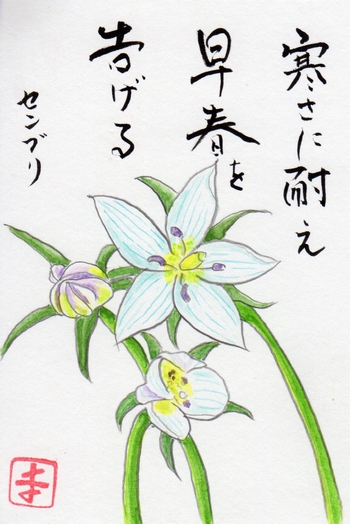 寒さに耐え
早春を
告げる
センブリ